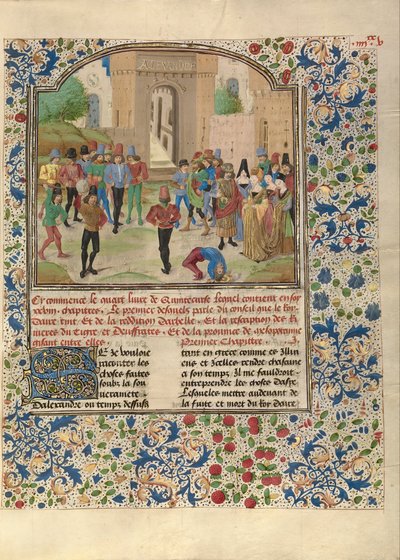 ALEXANDRE
Cy commence le quart livre de Quintecurse lequel contient en soy
chapitres. Le premier desquelz parle du conseil que le Roy
Daire tint. Et de la reddition Darbelle. Et la description des Ri
uieres du Tigre et Deuffrates. Et de la prouince de
gisant entre elles. Premier Chapitre.
Et Je vouloie
racompter les
choses faites
soubz la sou
ueraineté
Dalexandre ou temps dessus
tant en grece comme es Illiri
ens et Icelles rendre chascune
a son temps. Il me fauldroit
entreprendre les choses Dasye
Lesquelles mettre audeuant de
la fuite et mort du Roy Daire